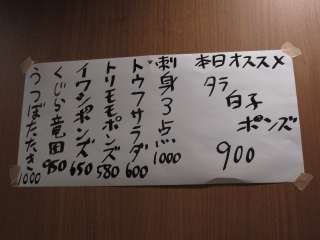 本日オススメ
タラ
白子
ポンズ
900
刺身3点
1000
トウフサラダ
600
トリモモポンズ
580
イワシポンズ
650
くじら竜田
950
うつぼたたき
1000